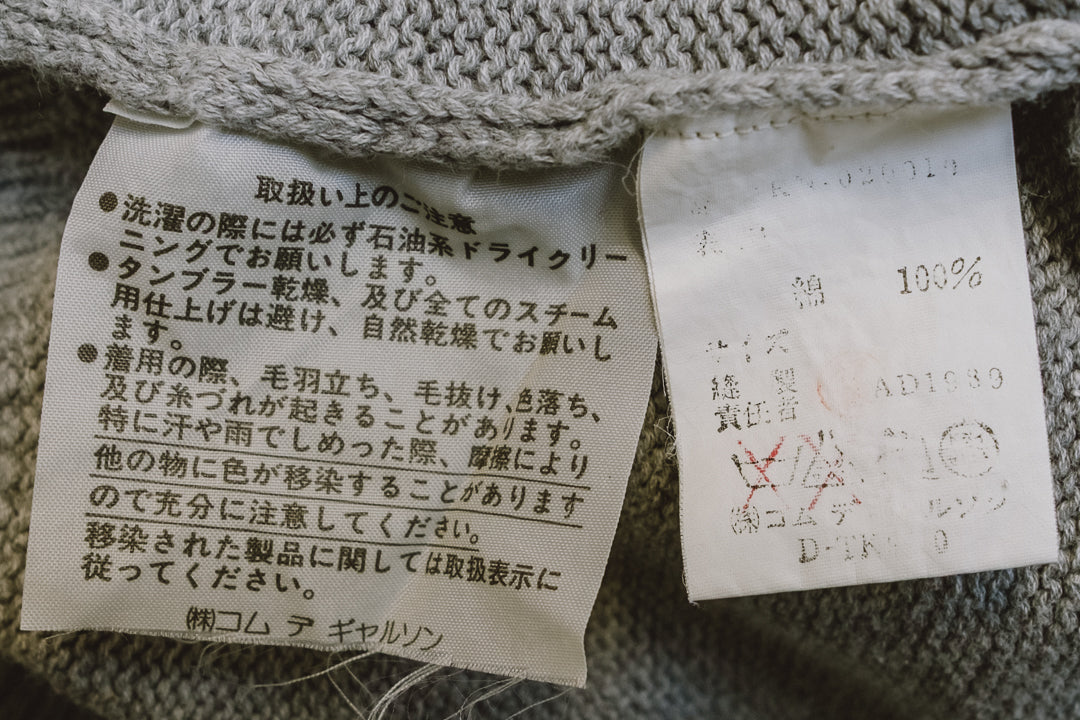 取扱い上のご注意
●洗濯の際には必ず石油系ドライクリー
ニングでお願いします。
●タンブラー乾燥、及び全てのスチーム
用仕上げは避け、自然乾燥でお願いし
ます。
●着用の際、毛羽立ち、毛抜け、色落ち、
及び糸づれが起きることがあります。
特に汗や雨でしめった際、摩擦により
他の物に色が移染することがあります
ので充分に注意してください。
移染された製品に関しては取扱表示に
従ってください。
㈱コム デ ギャルソン
綿 100%
サイズ
縫製 AD1989
責任者
㈱コム デ ルソン